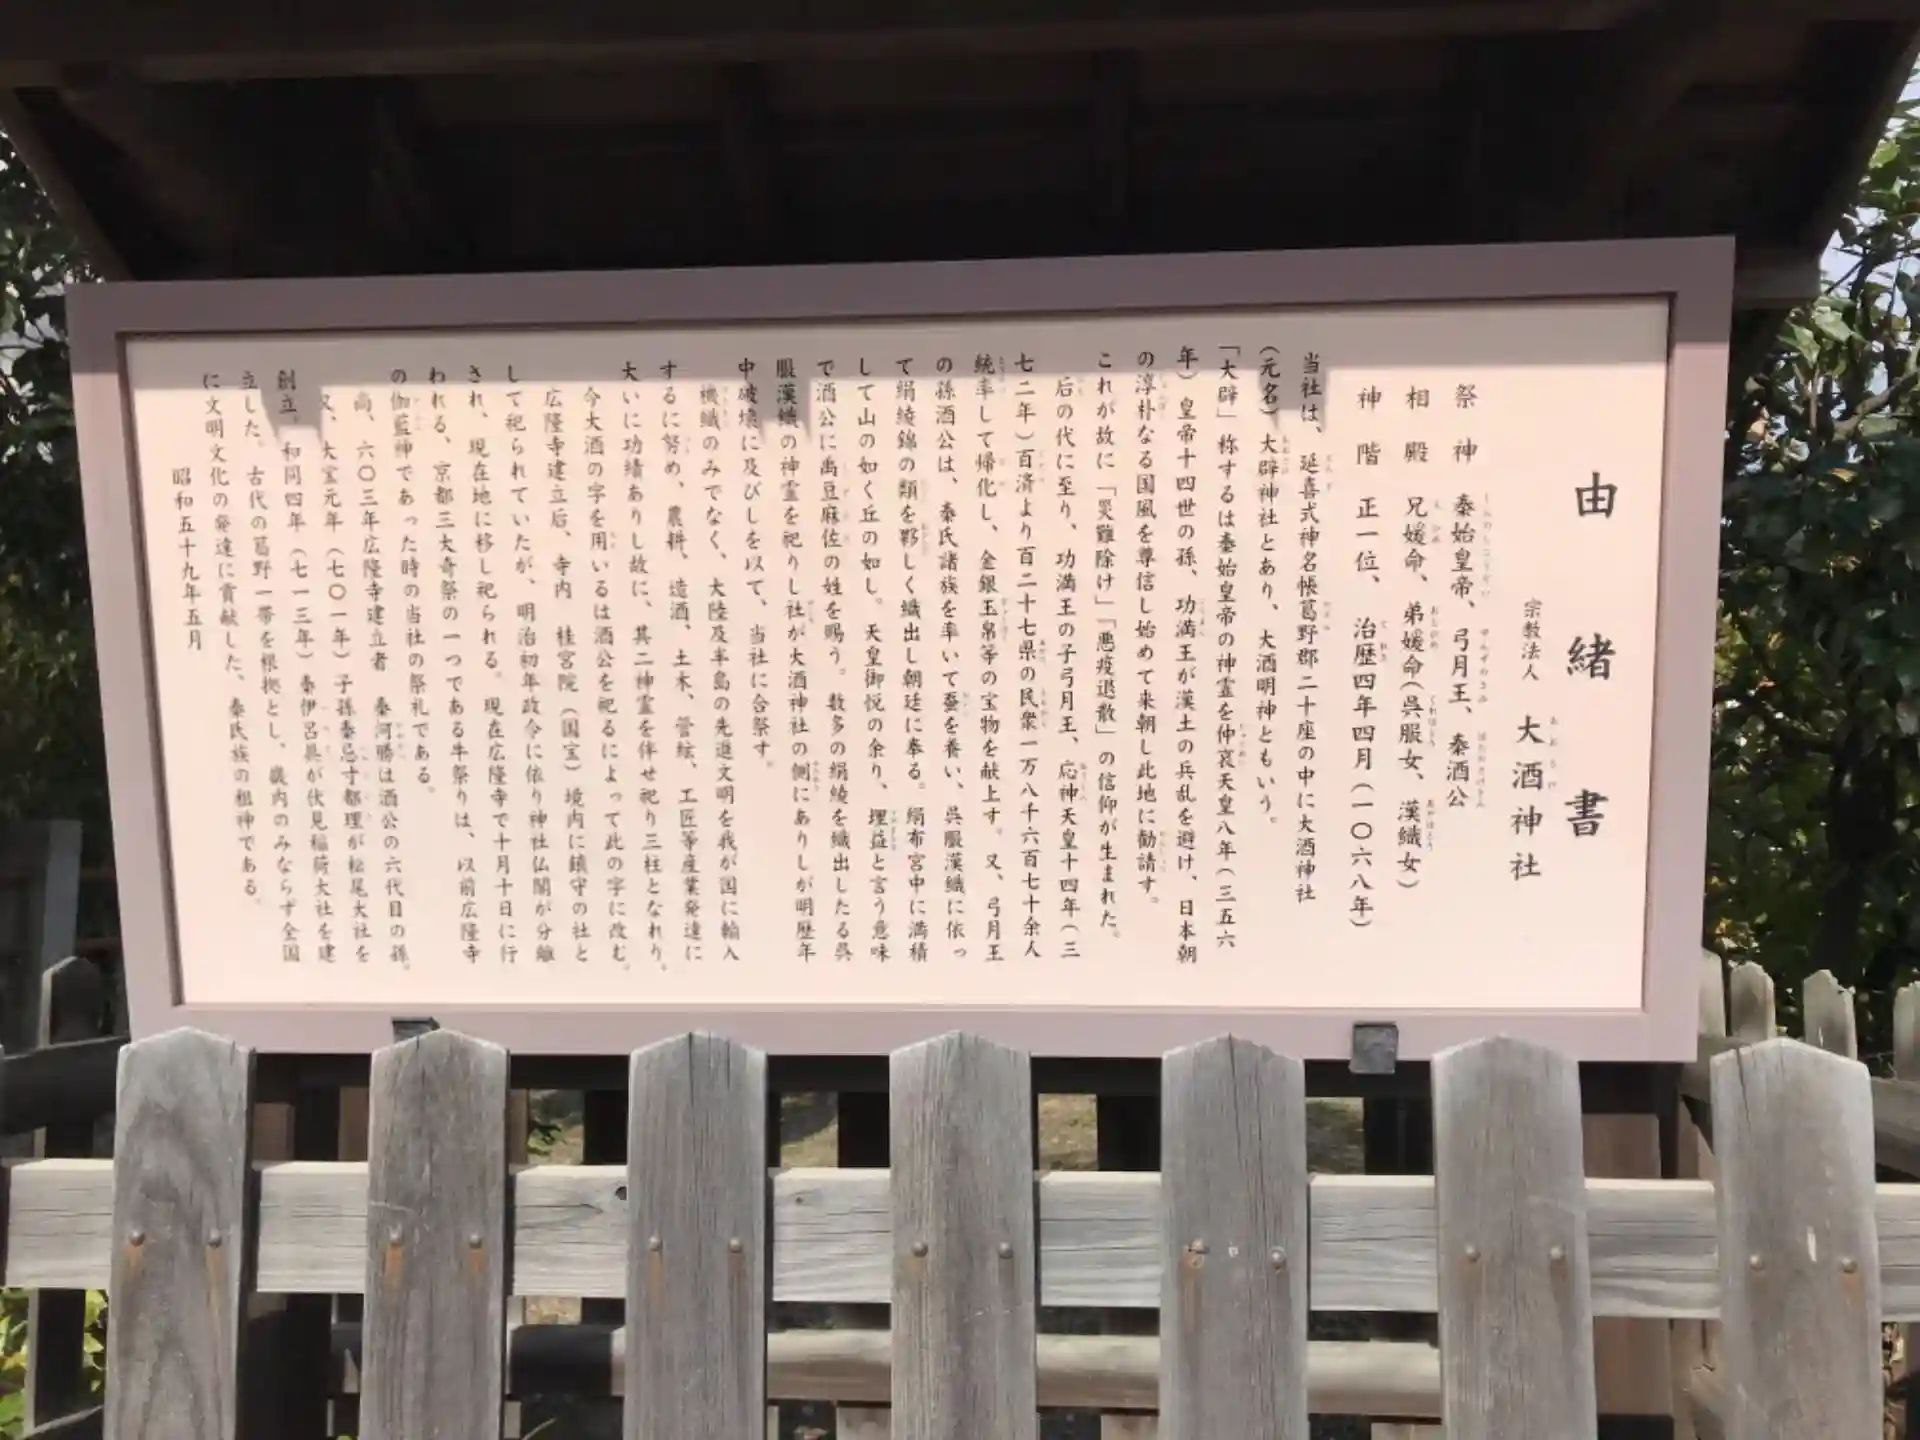 由緒書
宗教法人 大酒神社
祭神 秦始皇帝、弓月王、秦酒公
相殿 兄媛命、弟媛命(呉服女、漢織女)
神階 正一位、治歴四年四月(一〇六八年)
当社は、延喜式神名帳葛野郡二十座の中に大酒神社
(元名)大辟神社とあり、大酒明神ともいう。
「大辟」称するは秦始皇帝の神霊を仲哀天皇八年(三五六
年)皇帝十四世の孫、功満王が漢土の兵乱を避け、日本朝
の淳朴なる国風を尊信し始めて来朝し此地に勧請す。
これが故に「災難除け」「悪疫退散」の信仰が生まれた。
后の代に至り、功満王の子弓月王、応神天皇十四年(三
七二年)百済より百二十七県の民衆一万八千六百七十余人
統率して帰化し、金銀玉帛等の宝物を献上す。又、弓月王
の孫酒公は、秦氏諸族を率いて蚕を養い、呉服漢織に依っ
て絹綾錦の類を夥しく織出し朝廷に奉る。絹布宮中に満積
して山の如く丘の如し。天皇御悦の余り、埋益と言う意味
で酒公に禹豆麻佐の姓を賜う。数多の絹綾を織出したる呉
服漢織の神霊を祀りし社が大酒神社の側にありしが明歴年
中破壊に及びしを以て、当社に合祭す。
機織のみでなく、大陸及半島の先進文明を我が国に輸入
するに努め、農耕、造酒、土木、管絃、工匠等産業発達に
大いに功績ありし故に、其二神霊を伴せ祀り三柱となれり。
今大酒の字を用いるは酒公を祀るによって此の字に改む。
広隆寺建立后、寺内 桂宮院(国宝)境内に鎮守の社と
して祀られていたが、明治初年政令に依り神社仏閣が分離
され、現在地に移し祀られる。現在広隆寺で十月十日に行
われる、京都三大奇祭の一つである牛祭りは、以前広隆寺
の伽藍神であった時の当社の祭礼である。
尚、六〇三年広隆寺建立者 秦河勝は酒公の六代目の孫。
又、大宝元年(七〇一年)子孫秦忌寸都理が松尾大社を
創立。和同四年(七一三年)秦伊呂具が伏見稲荷大社を建
立した。古代の葛野一帯を根拠とし、畿内のみならず全国
に文明文化の発達に貢献した。秦氏族の祖神である。
昭和五十九年五月